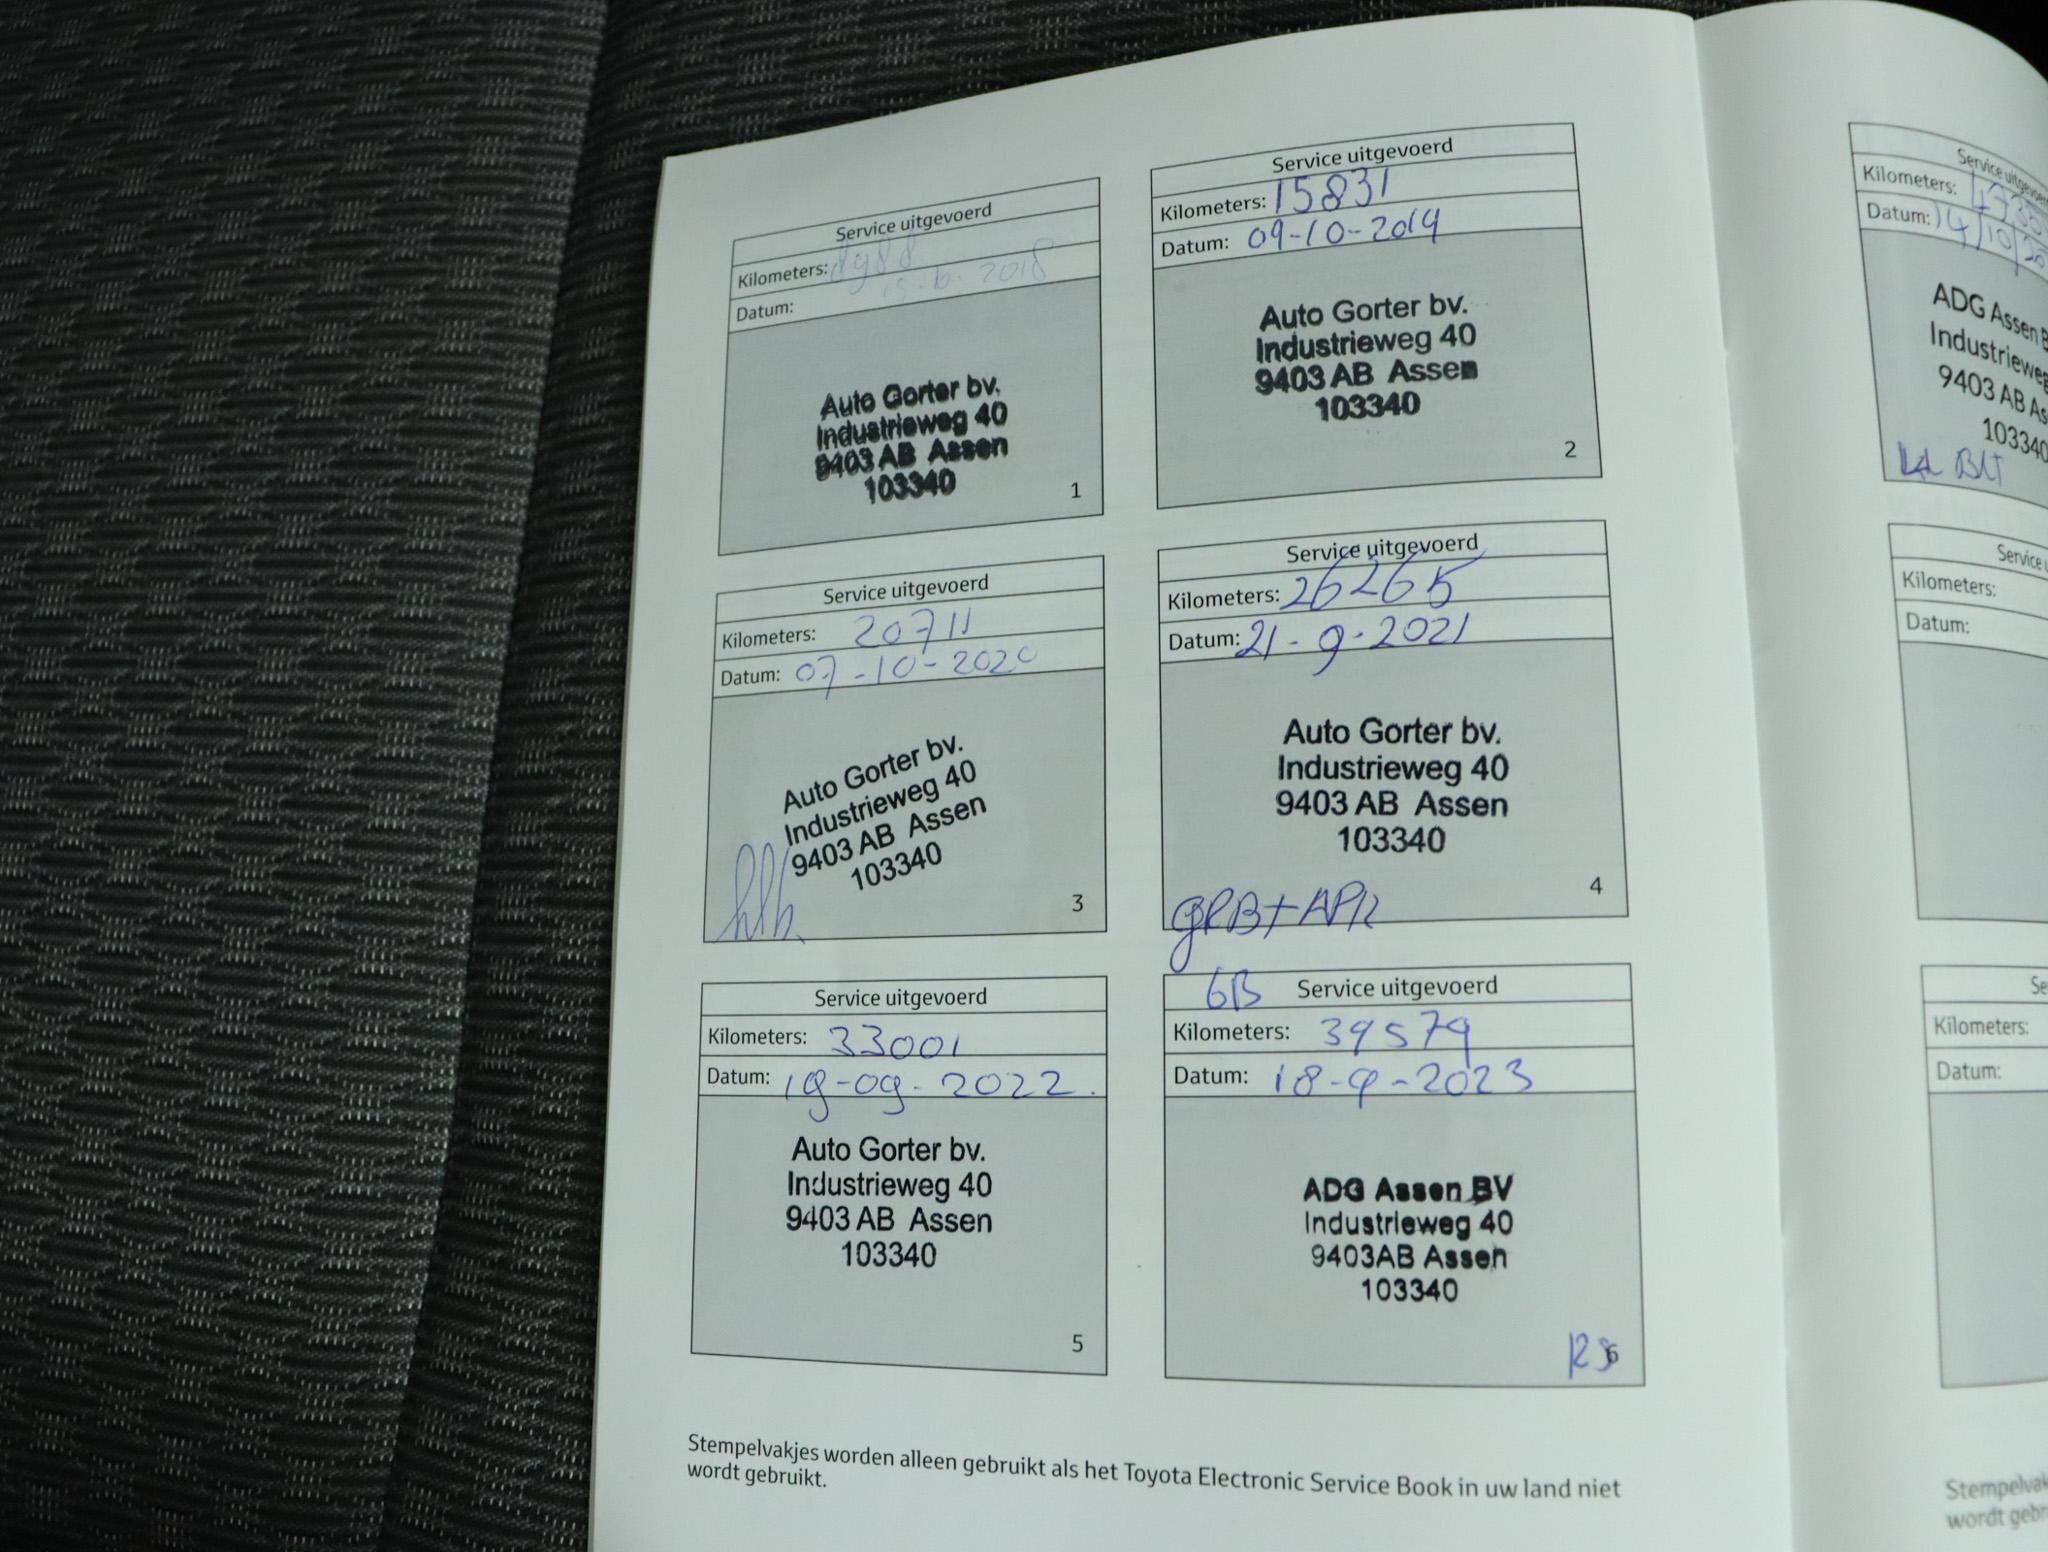 Service uitgevoerd
Kilometers:
Datum: 2018
Auto Gorter bv.
Industrieweg 40
9403 AB Assen
103340
1
Service uitgevoerd
Kilometers: 15831
Datum: 09-10-2019
Auto Gorter bv.
Industrieweg 40
9403 AB Assen
103340
2
Service uitgevoerd
Kilometers: 20711
Datum: 07-10-2020
Auto Gorter bv.
Industrieweg 40
9403 AB Assen
103340
3
Service uitgevoerd
Kilometers: 26265
Datum: 21-9-2021
Auto Gorter bv.
Industrieweg 40
9403 AB Assen
103340
4
Service uitgevoerd
Kilometers: 33001
Datum: 19-09-2022.
Auto Gorter bv.
Industrieweg 40
9403 AB Assen
103340
5
Service uitgevoerd
Kilometers: 39579
Datum: 18-9-2023
ADG Assen BV
Industrieweg 40
9403AB Assen
103340
6
Stempelvakjes worden alleen gebruikt als het Toyota Electronic Service Book in uw land niet
wordt gebruikt.
Service
Kilometers:
Datum: 14/10/20
ADG Assen
Industrieweg
9403 AB As
103340
Service
Kilometers:
Datum:
Se
Kilometers:
Datum:
Stempelvak
wordt gebr